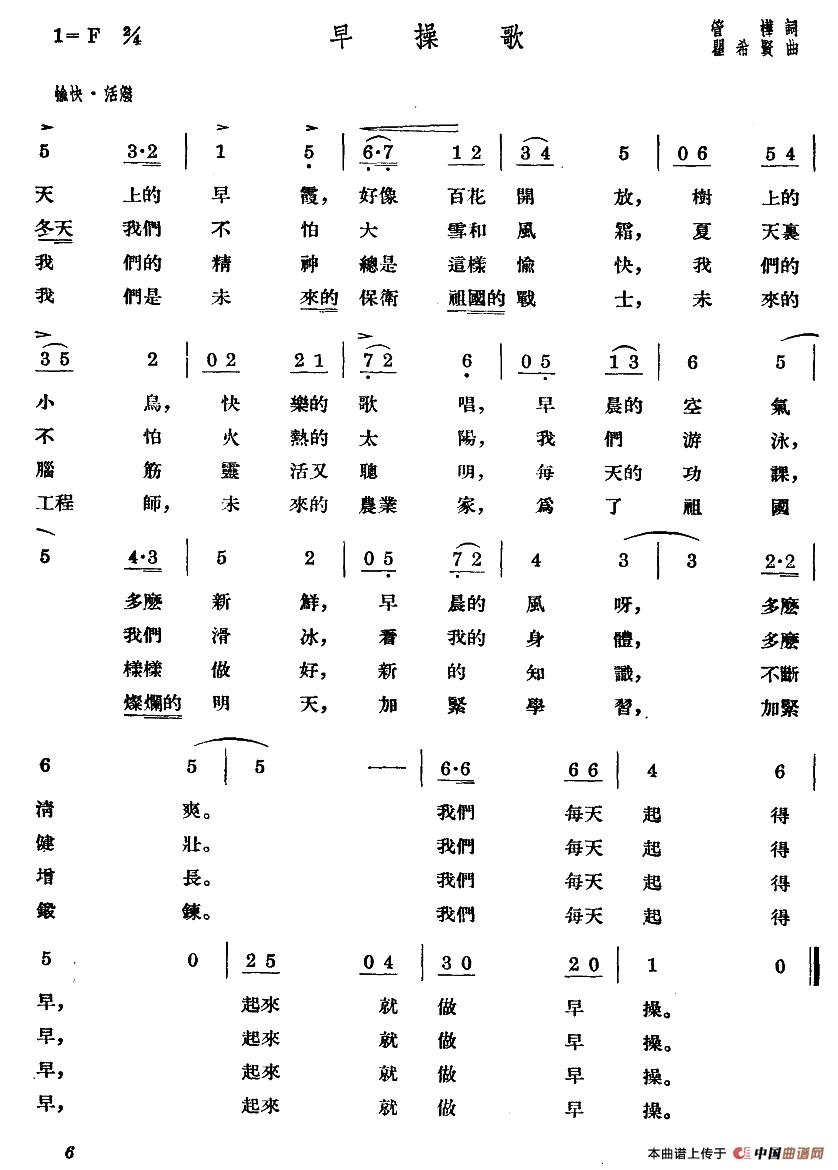 1= F 2/4 早操歌 管樺詞
瞿希賢曲
愉快·活潑
5 3·2 | 1 5 | 6·7 12 | 34 5 | 06 54 |
天上的早霞，好像百花開放，樹上的
冬天我們不怕大雪和風霜，夏天裏
我們的精神總是這樣愉快，我們的
我們是未來的保衛祖國的戰士，未來的
35 2 | 02 21 | 72 6 | 05 13 | 6 5 |
小鳥，快樂的歌唱，早晨的空氣
不怕火熱的太陽，我們游泳，
腦筋靈活又聰明，每天的功課，
工程師，未來的農業家，爲了祖國
5 4·3 | 5 2 | 05 72 | 4 3 | 3 2·2 |
多麼新鮮，早晨的風呀，多麼
我們滑冰，看我的身體，多麼
樣樣做好，新的知識，不斷
燦爛的明天，加緊學習，加緊
6 5 | 5 — | 6·6 66 | 4 6 |
清爽。我們每天起得
健壯。我們每天起得
增長。我們每天起得
鍛鍊。我們每天起得
5 0 | 25 04 | 30 20 | 1 0 ‖
早，起來就做早操。
早，起來就做早操。
早，起來就做早操。
早，起來就做早操。
6
本曲谱上传于 中国曲谱网